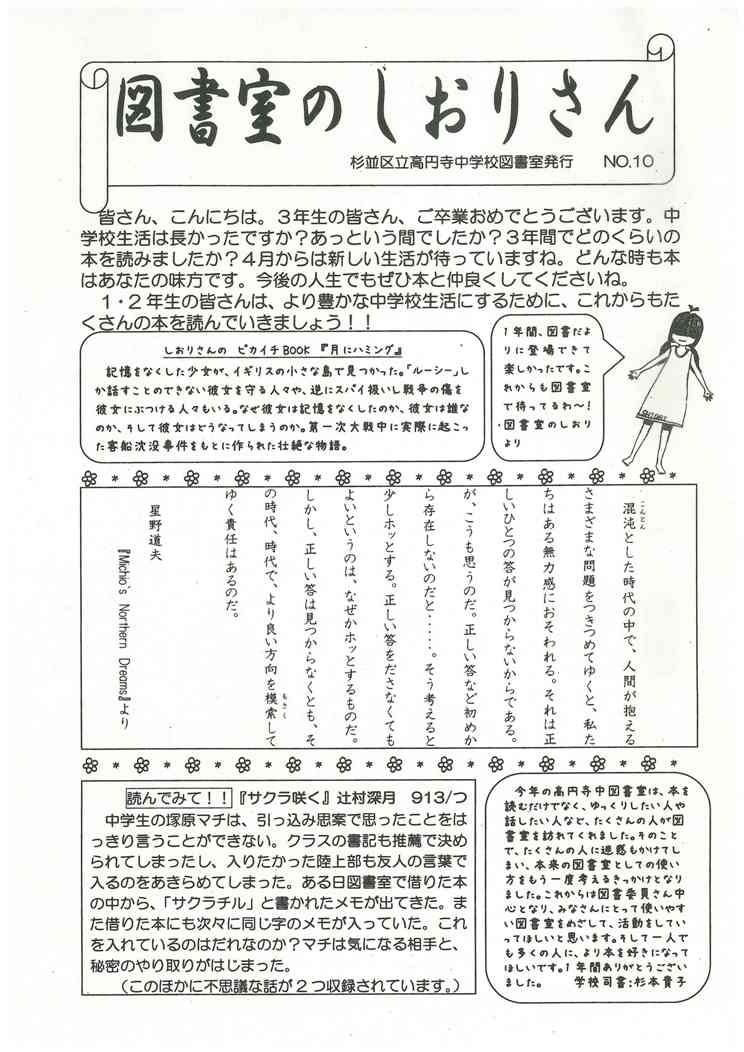 図書室のしおりさん
杉並区立高円寺中学校図書室発行　NO.10
皆さん、こんにちは。３年生の皆さん、ご卒業おめでとうございます。中
学校生活は長かったですか？あっという間でしたか？３年間でどのくらいの
本を読みましたか？４月からは新しい生活が待っていますね。どんな時も本
はあなたの味方です。今後の人生でもぜひ本と仲良くしてくださいね。
１・２年生の皆さんは、より豊かな中学校生活にするために、これからもた
くさんの本を読んでいきましょう！！
しおりさんの ピカイチBOOK 『月にハミング』
記憶をなくした少女が、イギリスの小さな島で見つかった。「ルーシー」し
か話すことのできない彼女を守る人々や、逆にスパイ扱いし戦争の傷を
彼女にぶつける人々もいる。なぜ彼女は記憶をなくしたのか、彼女は誰な
のか、そして彼女はどうなってしまうのか。第一次大戦中に実際に起こっ
た客船沈没事件をもとに作られた壮絶な物語。
１年間、図書だよ
りに登場できて
楽しかったです。こ
れからも図書室
で待ってるわ～！
・図書室のしおり
より
SHIORI
混沌とした時代の中で、人間が抱える
こんとん
さまざまな問題をつきつめてゆくと、私た
ちはある無力感におそわれる。それは正
しいひとつの答が見つからないからである。
が、こうも思うのだ。正しい答など初めか
ら存在しないのだと・・・・・・。そう考えると
少しホッとする。正しい答をださなくても
よいというのは、なぜかホッとするものだ。
しかし、正しい答は見つからなくとも、そ
の時代、時代で、より良い方向を模索して
もさく
ゆく責任はあるのだ。
星野道夫
『Michio's Northern Dreams』より
読んでみて！！『サクラ咲く』辻村深月　913/つ
中学生の塚原マチは、引っ込み思案で思ったことをは
っきり言うことができない。クラスの書記も推薦で決め
られてしまったし、入りたかった陸上部も友人の言葉で
入るのをあきらめてしまった。ある日図書室で借りた本
の中から、「サクラチル」と書かれたメモが出てきた。ま
た借りた本にも次々に同じ字のメモが入っていた。これ
を入れているのはだれなのか？マチは気になる相手と、
秘密のやり取りがはじまった。
（このほかに不思議な話が２つ収録されています。）
今年の高円寺中図書室は、本を
読むだけでなく、ゆっくりしたい人や
話したい人など、たくさんの人が図
書室を訪れてくれました。そのこと
で、たくさんの人に迷惑もかけてし
まい、本来の図書室としての使い
方をもう一度考えるきっかけとなり
ました。これからは図書委員さん中
心となり、みなさんにとって使いやす
い図書室をめざして、活動をしてい
ってほしいと思います。そして一人で
も多くの人に、より本を好きになって
ほしいです。１年間ありがとうござい
ました。　学校司書：杉本貴子